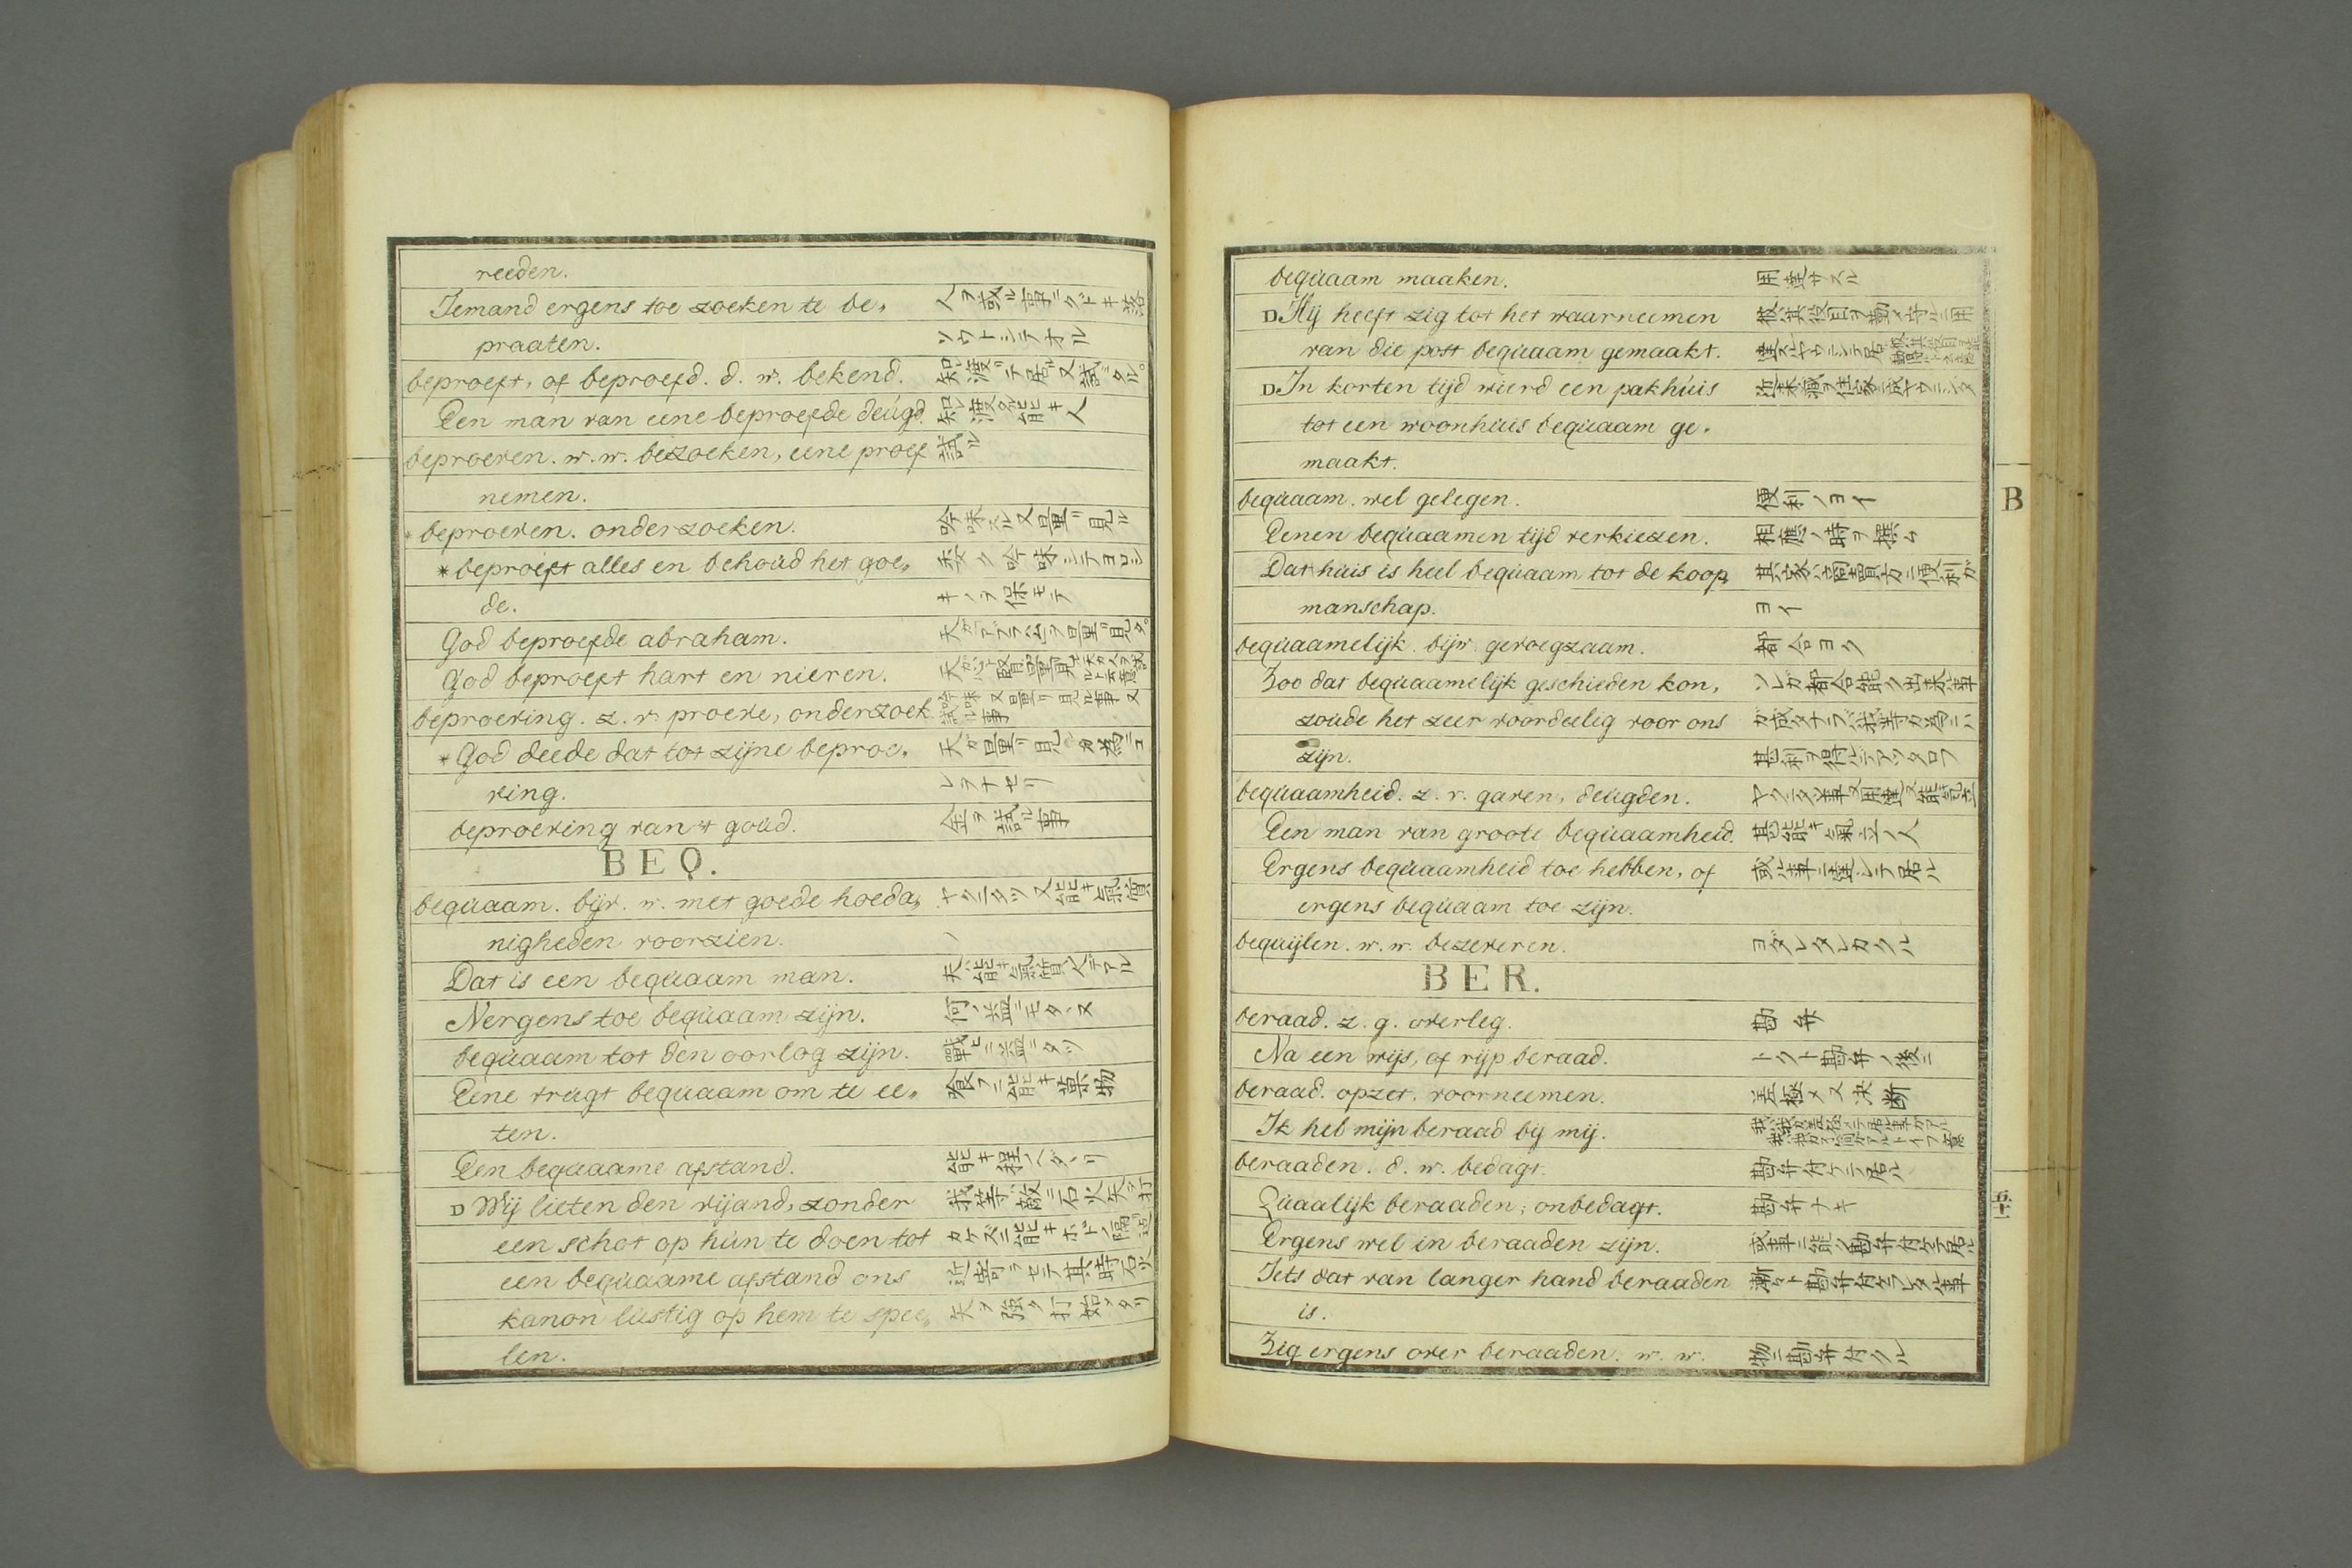 reeden.
Iemand ergens toe zoeken te be„ 人ヲ或ル事ニクドキ落
praaten. ソウトシテオル
beproeft, of beproefd. d. w. bekend. 知レ渡リテ居ル又試ミタル。
Een man van eene beproefde deúgd. 知レ渡タル能キ人
beproeven. w. w. bezoeken, eene proef 試ル
nemen.
* beproeven. onderzoeken. 吟味スル又量リ見ル
* beproeft alles en behoúd het goe„ 委ク吟味シテヨロシ
de. キノヲ保モテ
God beproefde abraham.
God beproeft hart en nieren.
beproeving. z. v. proeve, onderzoek 吟味又量リ見ル事又試ル事
* God deede dat tot zijne beproe„ 天ガ量リ見ルガ為ニコ
ving. レヲナセリ
beproeving van 't goúd. 金ヲ試ル事
BEQ.
beqúaam. bijv. w. met goede hoeda„ ヤクニタツ又能キ氣質
nigheden voorzien. ノ
Dat is een beqúaam man. 夫ハ能キ氣質ノ人デアル
Nergens toe beqúaam zijn. 何ノ益ニモタヽヌ
beqúaam tot den oorlog zijn. 戰ヒニ益ニタツ
Eene vrúgt beqúaam om te ee„ 食フニ能キ菓物
ten.
Een beqúaame afstand. 能キ程ノヘダヽリ
D Wij lieten den vijand, zonder 我等ガ敵ニ石火矢ヲ打
een schot op hún te doen tot カケズニ能キホドノ隔迄
een beqúaame afstand ons 近寄ラセテ其時石火
kanon lústig op hem te spee„ 矢ヲ強ク打始メタリ
len.
beqúaam maaken. 用達サスル
D Hij heeft zig tot het waarneemen 彼ハ其役目ヲ勤メ守ルニ用
van die post beqúaam gemaakt.
D In korten tijd wierd een pakhúis
tot een woonhúis beqúaam ge„
maakt.
beqúaam. wel gelegen. 便利ノヨイ
Eenen beqúaamen tijd verkiezen. 相應ノ時ヲ撰ム
Dat húis is heel beqúaam tot de koop„ 其家ハ商賣方ニ便利ガ
manschap. ヨイ
beqúaamelijk. bijw. gevoegzaam. 都合ヨク
Zoo dat beqúaamelijk geschieden kon, ソレガ都合能ク出来ル事
zoúde het zeer voordeelig voor ons ガ成タナラバ我等ガ為ニハ
zijn. 甚利ヲ得ルデアツタロフ
beqúaamheid. z. v. gaven, deúgden.
Een man van groote beqúaamheid. 甚能キ氣立ノ人
Ergens beqúaamheid toe hebben, of 或ル事ニ達シテ居ル
ergens beqúaam toe zijn.
beqúijlen. w. w. bezeveren. ヨダレタレカクル
BER.
beraad. z. g. overleg. 勘弁
Na een wijs, of rijp beraad. トクト勘弁ノ後ニ
beraad. opzet. voorneemen. 差極メ又決断
Ik heb mijn beraad bij mij.
beraaden. d. w. bedagt. 勘弁付ケテ居ル
Qúaalijk beraaden; onbedagt. 勘弁ナキ
Ergens wel in beraaden zijn. 或事ニ能ク勘弁付ケテ居ル
Iets dat van langer hand beraaden 漸々ト勘弁付ケラレタル事
is.
Zig ergens over beraaden. w. w. 物ニ勘弁付クル
B